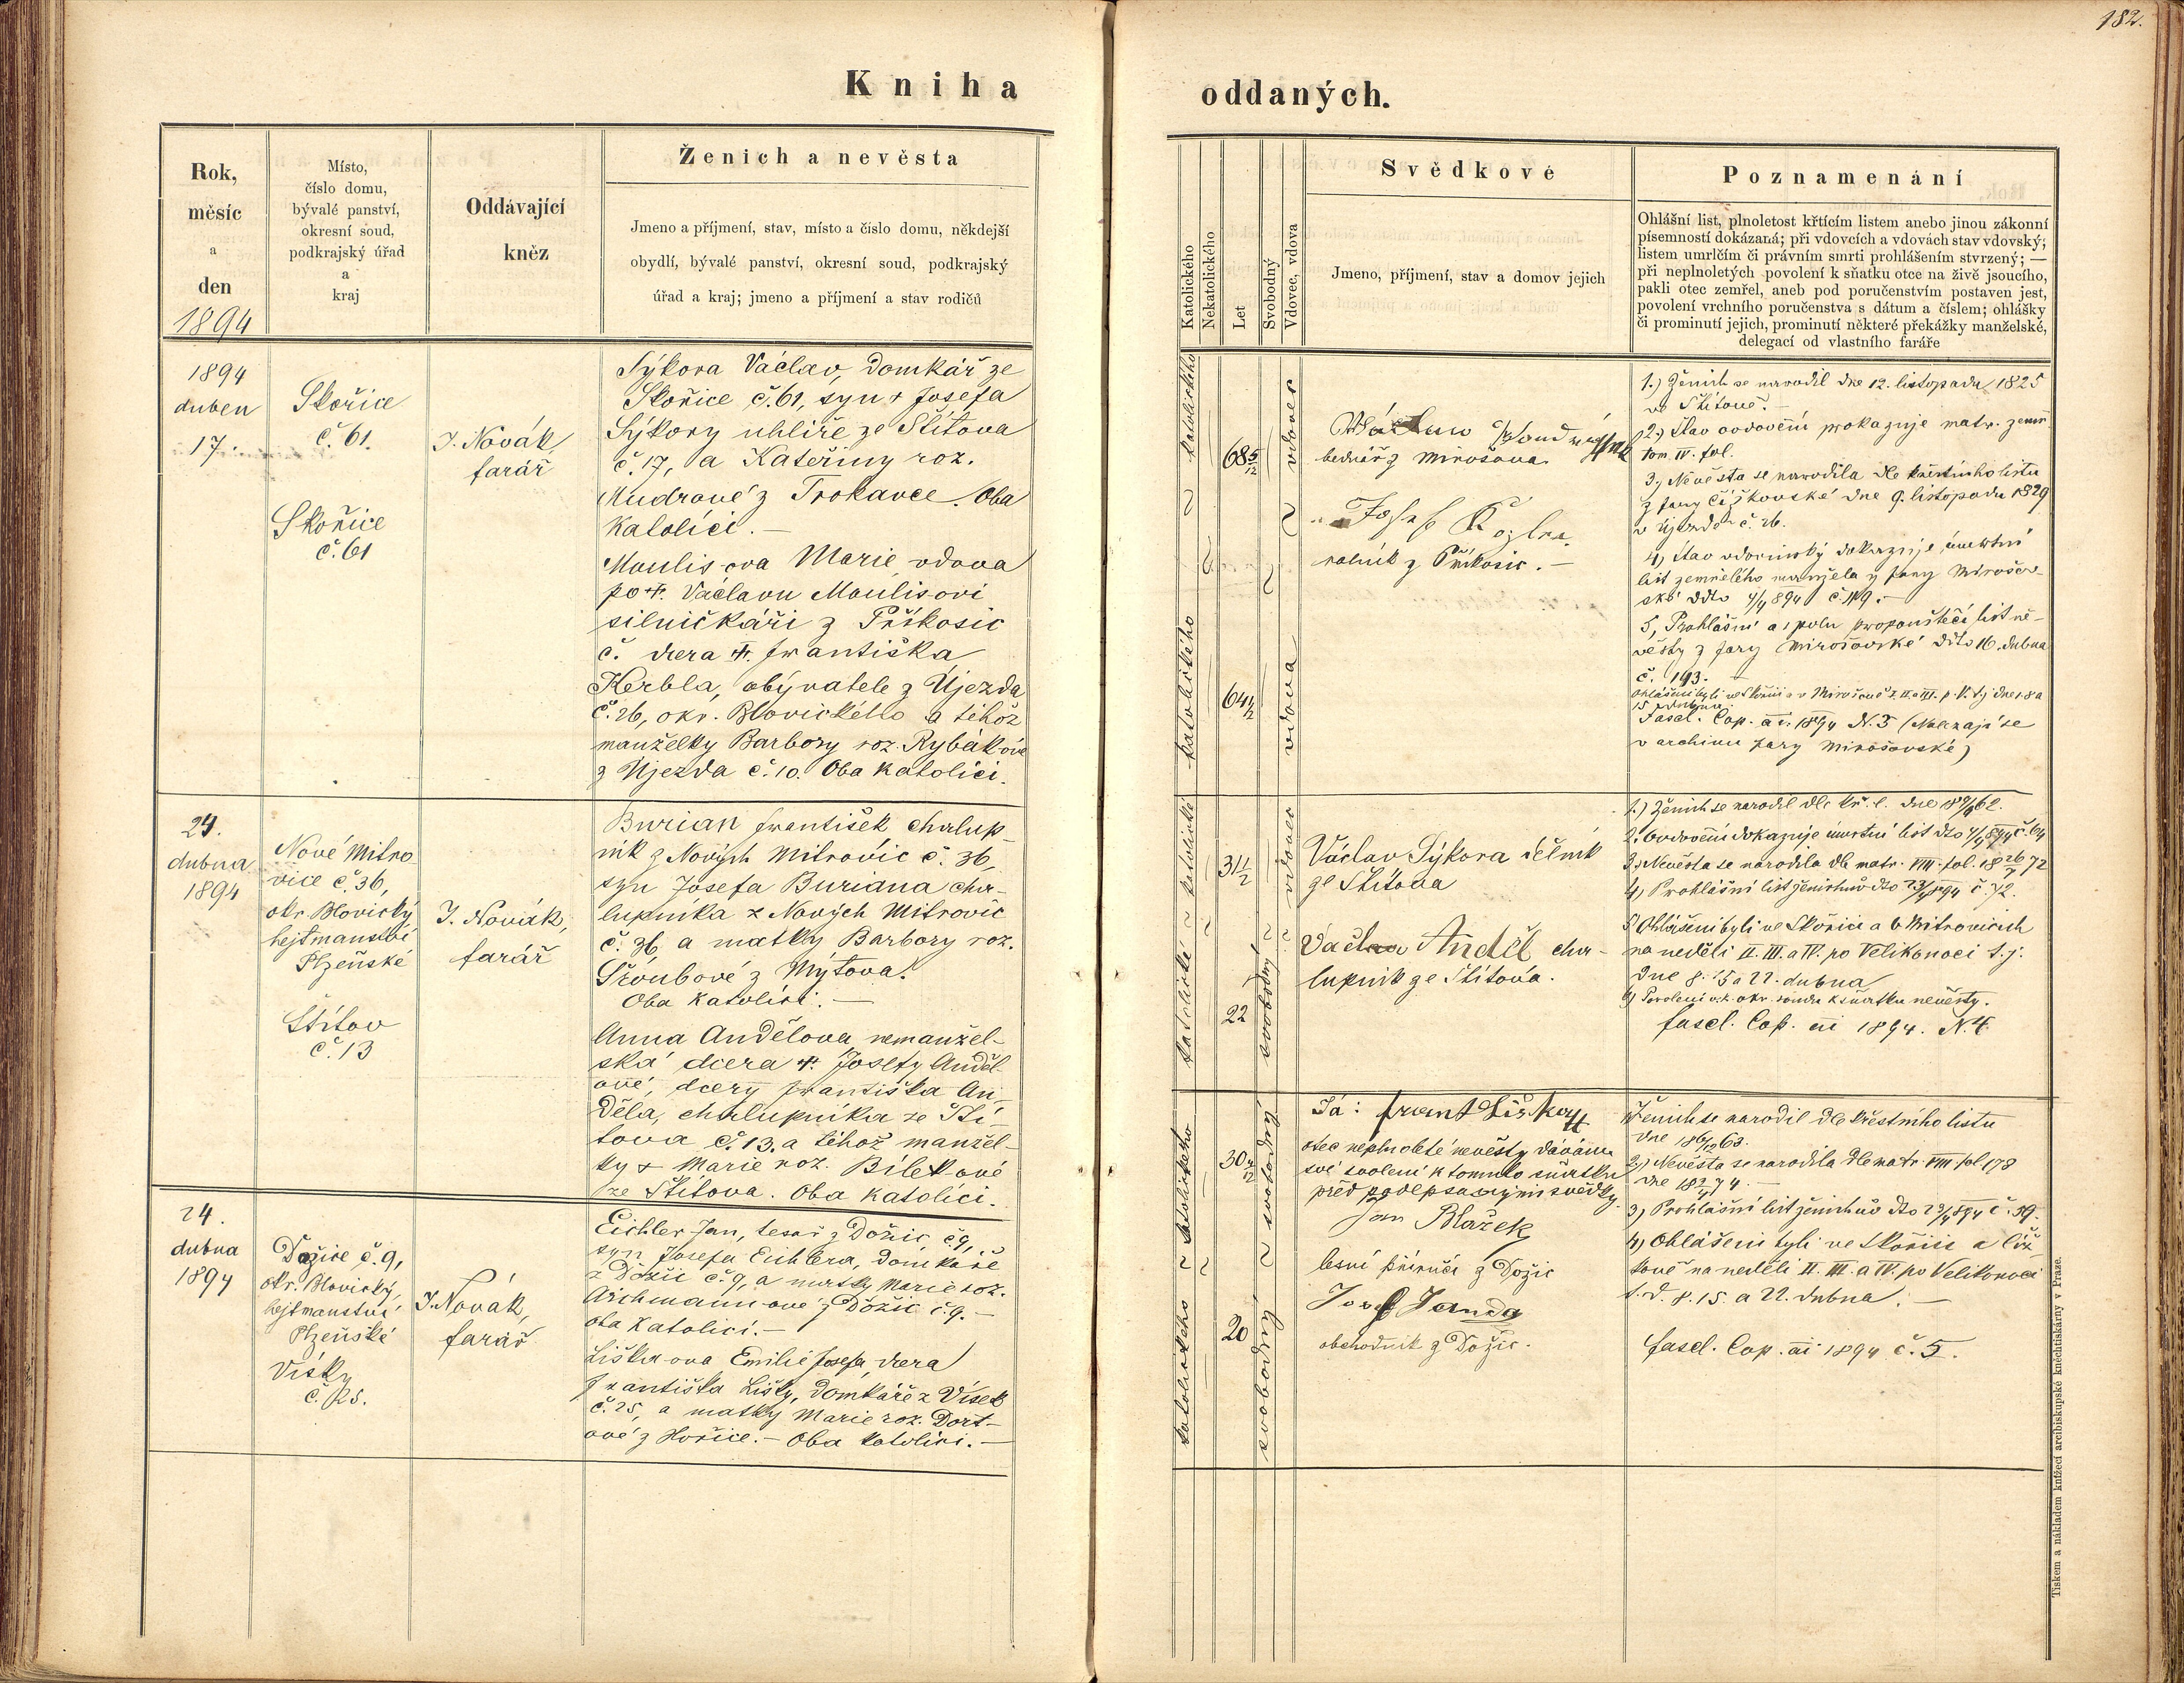 182.
Kniha oddaných.
Rok,
měsíc
a
den
1894
Místo,
číslo domu,
bývalé panství,
okresní soud,
podkrajský úřad
a
kraj
Oddávající
kněz
Ženich a nevěsta
Jmeno a příjmení, stav, místo a číslo domu, někdejší
obydlí, bývalé panství, okresní soud, podkrajský
úřad a kraj; jmeno a příjmení a stav rodičů
Katolického
Nekatolického
Let
Svobodný
Vdovec, vdova
Svědkové
Jmeno, příjmení, stav a domov jejich
Poznamenání
Ohlášní list, plnoletost křtícím listem anebo jinou zákonní
písemností dokázaná; při vdovcích a vdovách stav vdovský;
listem umrlčím či právním smrti prohlášením stvrzený; —
při neplnoletých povolení k sňatku otce na živě jsoucího,
pakli otec zemřel, aneb pod poručenstvím postaven jest,
povolení vrchního poručenstva s dátum a číslem; ohlášky
či prominutí jejich, prominutí některé překážky manželské,
delegací od vlastního faráře
1894
duben
17.
Skořice
č. 61.
Skořice
č. 61
J. Novák,
farář
Sýkora Václav, domkář ze
Skořice č. 61, syn † Josefa
Sýkory uhlíře ze Štítova
č. 17, a Kateřiny roz.
Mudrové z Trokavce. Oba
katolíci. —
Moulis-ova Marie, vdova
po †. Václavu Moulisovi
silničkáři z Příkosic
č. dcera †. Františka
Kerbla, obývatele z Újezda
č. 26, okr. Blovického a téhož
manželky Barbory roz. Rybákové
z Újezda č. 10. Oba katolíci.
katolického
katolického
68 5/12
64 1/2
vdovec
vdova
Václav
bednář z Mirošova
Josef Kozler
rolník z Příkosic. —
1.) Ženich se narodil dne 12. listopadu 1825
ve Štítově. —
2.) Stav ovdovění prokazuje matr. zemř.
tom. IV. fol.
3.) Nevěsta se narodila dle křestního listu
z fary Čížkovské dne 9. listopadu 1829
v Újezdě č. 26.
4.) Stav vdovinský dokazuje úmrtní
list zemřelého manžela z fary Mirošov-
ské ddto 4/4 894 č. 119. —
5, Prohlášní a spolu propouštěcí list ne-
věsty z fary Mirošovské ddto 16. dubna
č. 193. —
15. dubna.
Fasci. Cop. ai. 1894 N. 3 (Nalezají se
v archivu fary Mirošovské)
24.
dubna
1894
Nové Mitro
vice č. 36,
okr. Blovický
hejtmanství
Plzeňské
Štítov
č. 13
J. Novák,
farář
Burian František chalup-
ník z Nových Mitrovic č. 36,
syn Josefa Buriana cha-
lupníka z Nových Mitrovic
č. 36 a matky Barbory roz.
Šroubové z Mýtova.
Oba katolíci. —
Anna Andělova, nemanžel-
ská dcera †. Josefy Anděl-
ové, dcery Františka An-
děla, chalupníka ze Ští-
tova č. 13. a téhož manžel-
ky † Marie roz. Bílekové
ze Štítova. Oba katolíci.
katolické
katolické
31 1/2
22
vdovec
svobodný
Václav Sýkora dělník
ze Štítova
Václav Anděl cha-
lupník ze Štítova.
1.) Ženich se narodil dle kř. l. dne
2. Ovdovění dokazuje úmrtní list dto
3.) Nevěsta se narodila dle matr. VIII. fol. 18 26/7 72
4.) Prohlášní list ženichův dto 23/4 894 č. 72.
5) Ohlášeni byli ve Skořici a v Mitrovicích
na neděli II. III. a IV. po Velikonoci t. j.
dne 8. 15 a 22. dubna
6) Povolení ok. soudu k sňatku nevěsty.
fascl. Cop. ai 1894. N. 4
24.
dubna
1894
Dožice č. 9,
okr. Blovický,
hejtmanství
Plzeňské
Vísky
č. 25.
J. Novák,
farář
Eichler Jan, tesař z Dožic č. 9,
syn Josefa Eichlera, domkáře
z Dožic č. 9, a matky Marie roz.
Aichmannové z Dožic č. 9. —
oba katolíci. —
Lišková Emilie Josefa, dcera
Františka Lišky, domkáře z Vísek
č. 25, a matky Marie roz. Dort-
ové z Hořice. — Oba katolíci. —
katolického
katolického
30
20
svobodný
svobodný
Já: Frant Liška
otec neplnoleté nevěsty dávám
své svolení k tomuto sňatku
před podepsanými svědky.
Jan Blažek
lesní příručí z Dožic
Josef Janda
obchodník z Dožic.
Ženich se narodil dle křestního listu
dne 18 6/10 63.
2.) Nevěsta se narodila dle matr. VIII. fol. 178
dne 18 2/4 74. —
3) Prohlášní list ženichův dto 23/4 894 č. 59.
4) Ohlášeni byli ve Skořici a Číž-
kově na neděli II. III. a IV. po Velikonoci
t. d. 8. 15. a 22. dubna. —
fascl. Cop. ai 1894 č. 5.
Tiskem a nákladem knížecí arcibiskupské kněhtiskárny v Praze.